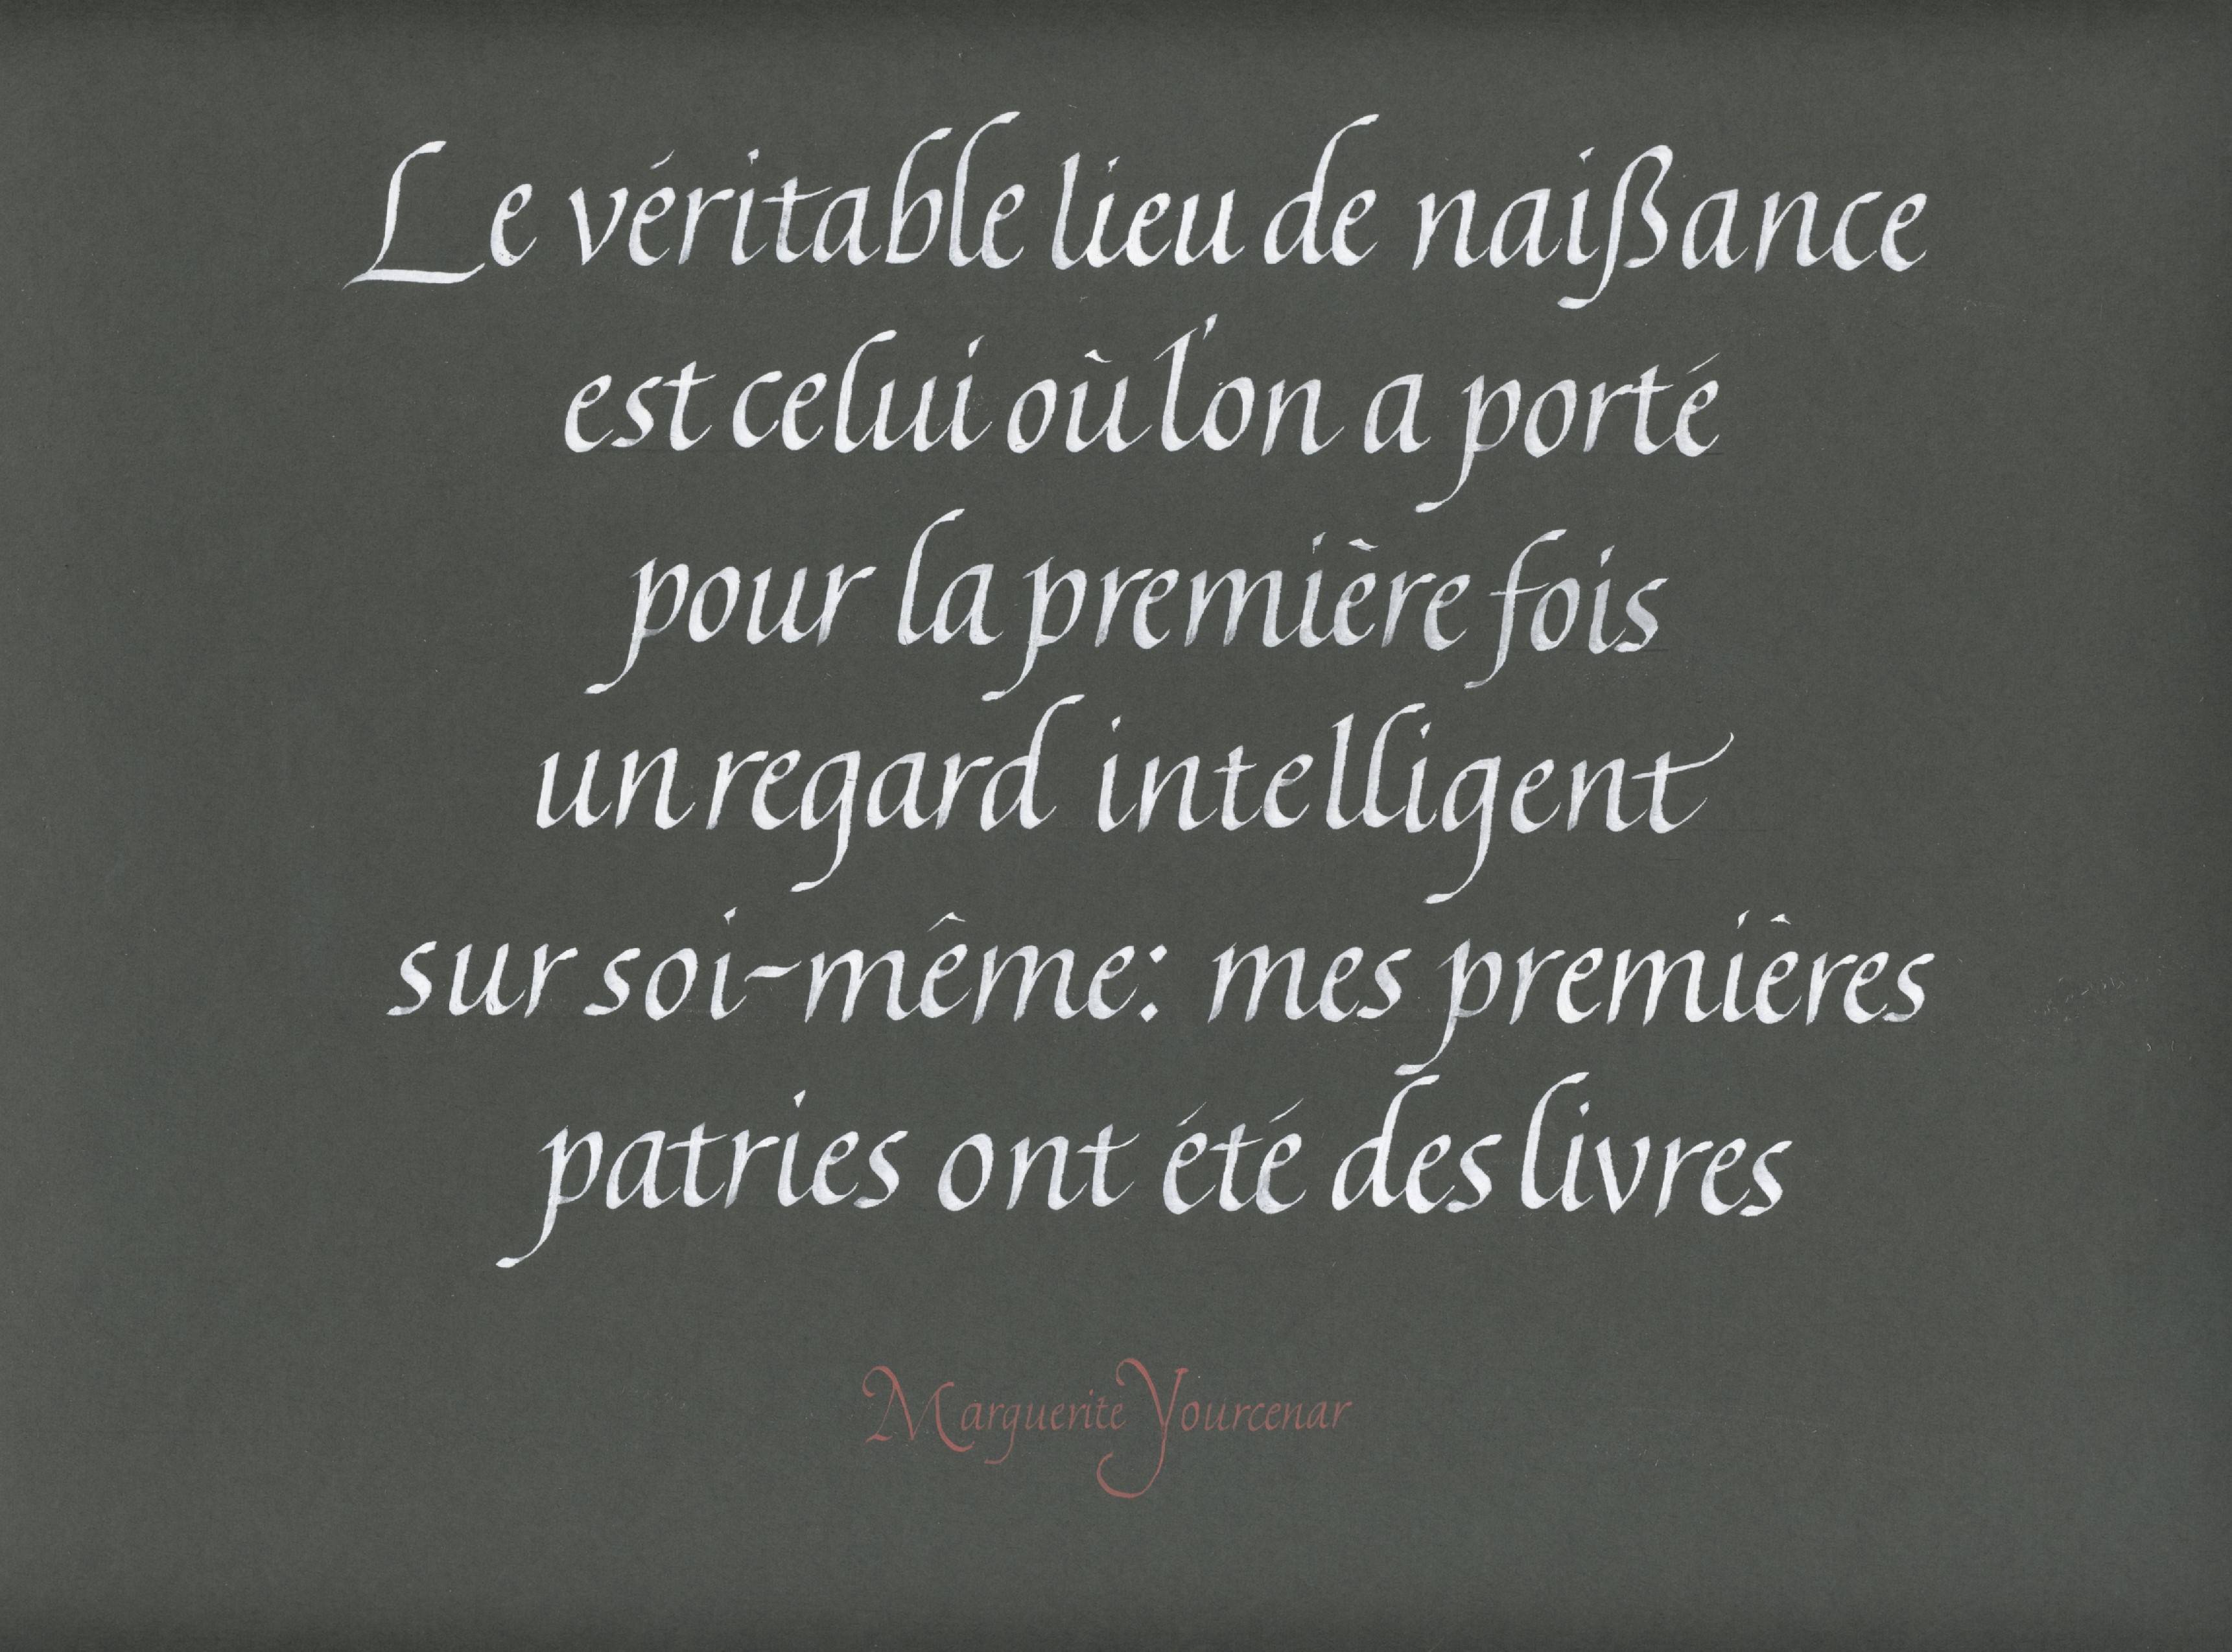 Le véritable lieu de naißance
est celui où l'on a porté
pour la première fois
un regard intelligent
sur soi-même: mes premières
patries ont été des livres
Marguerite Yourcenar